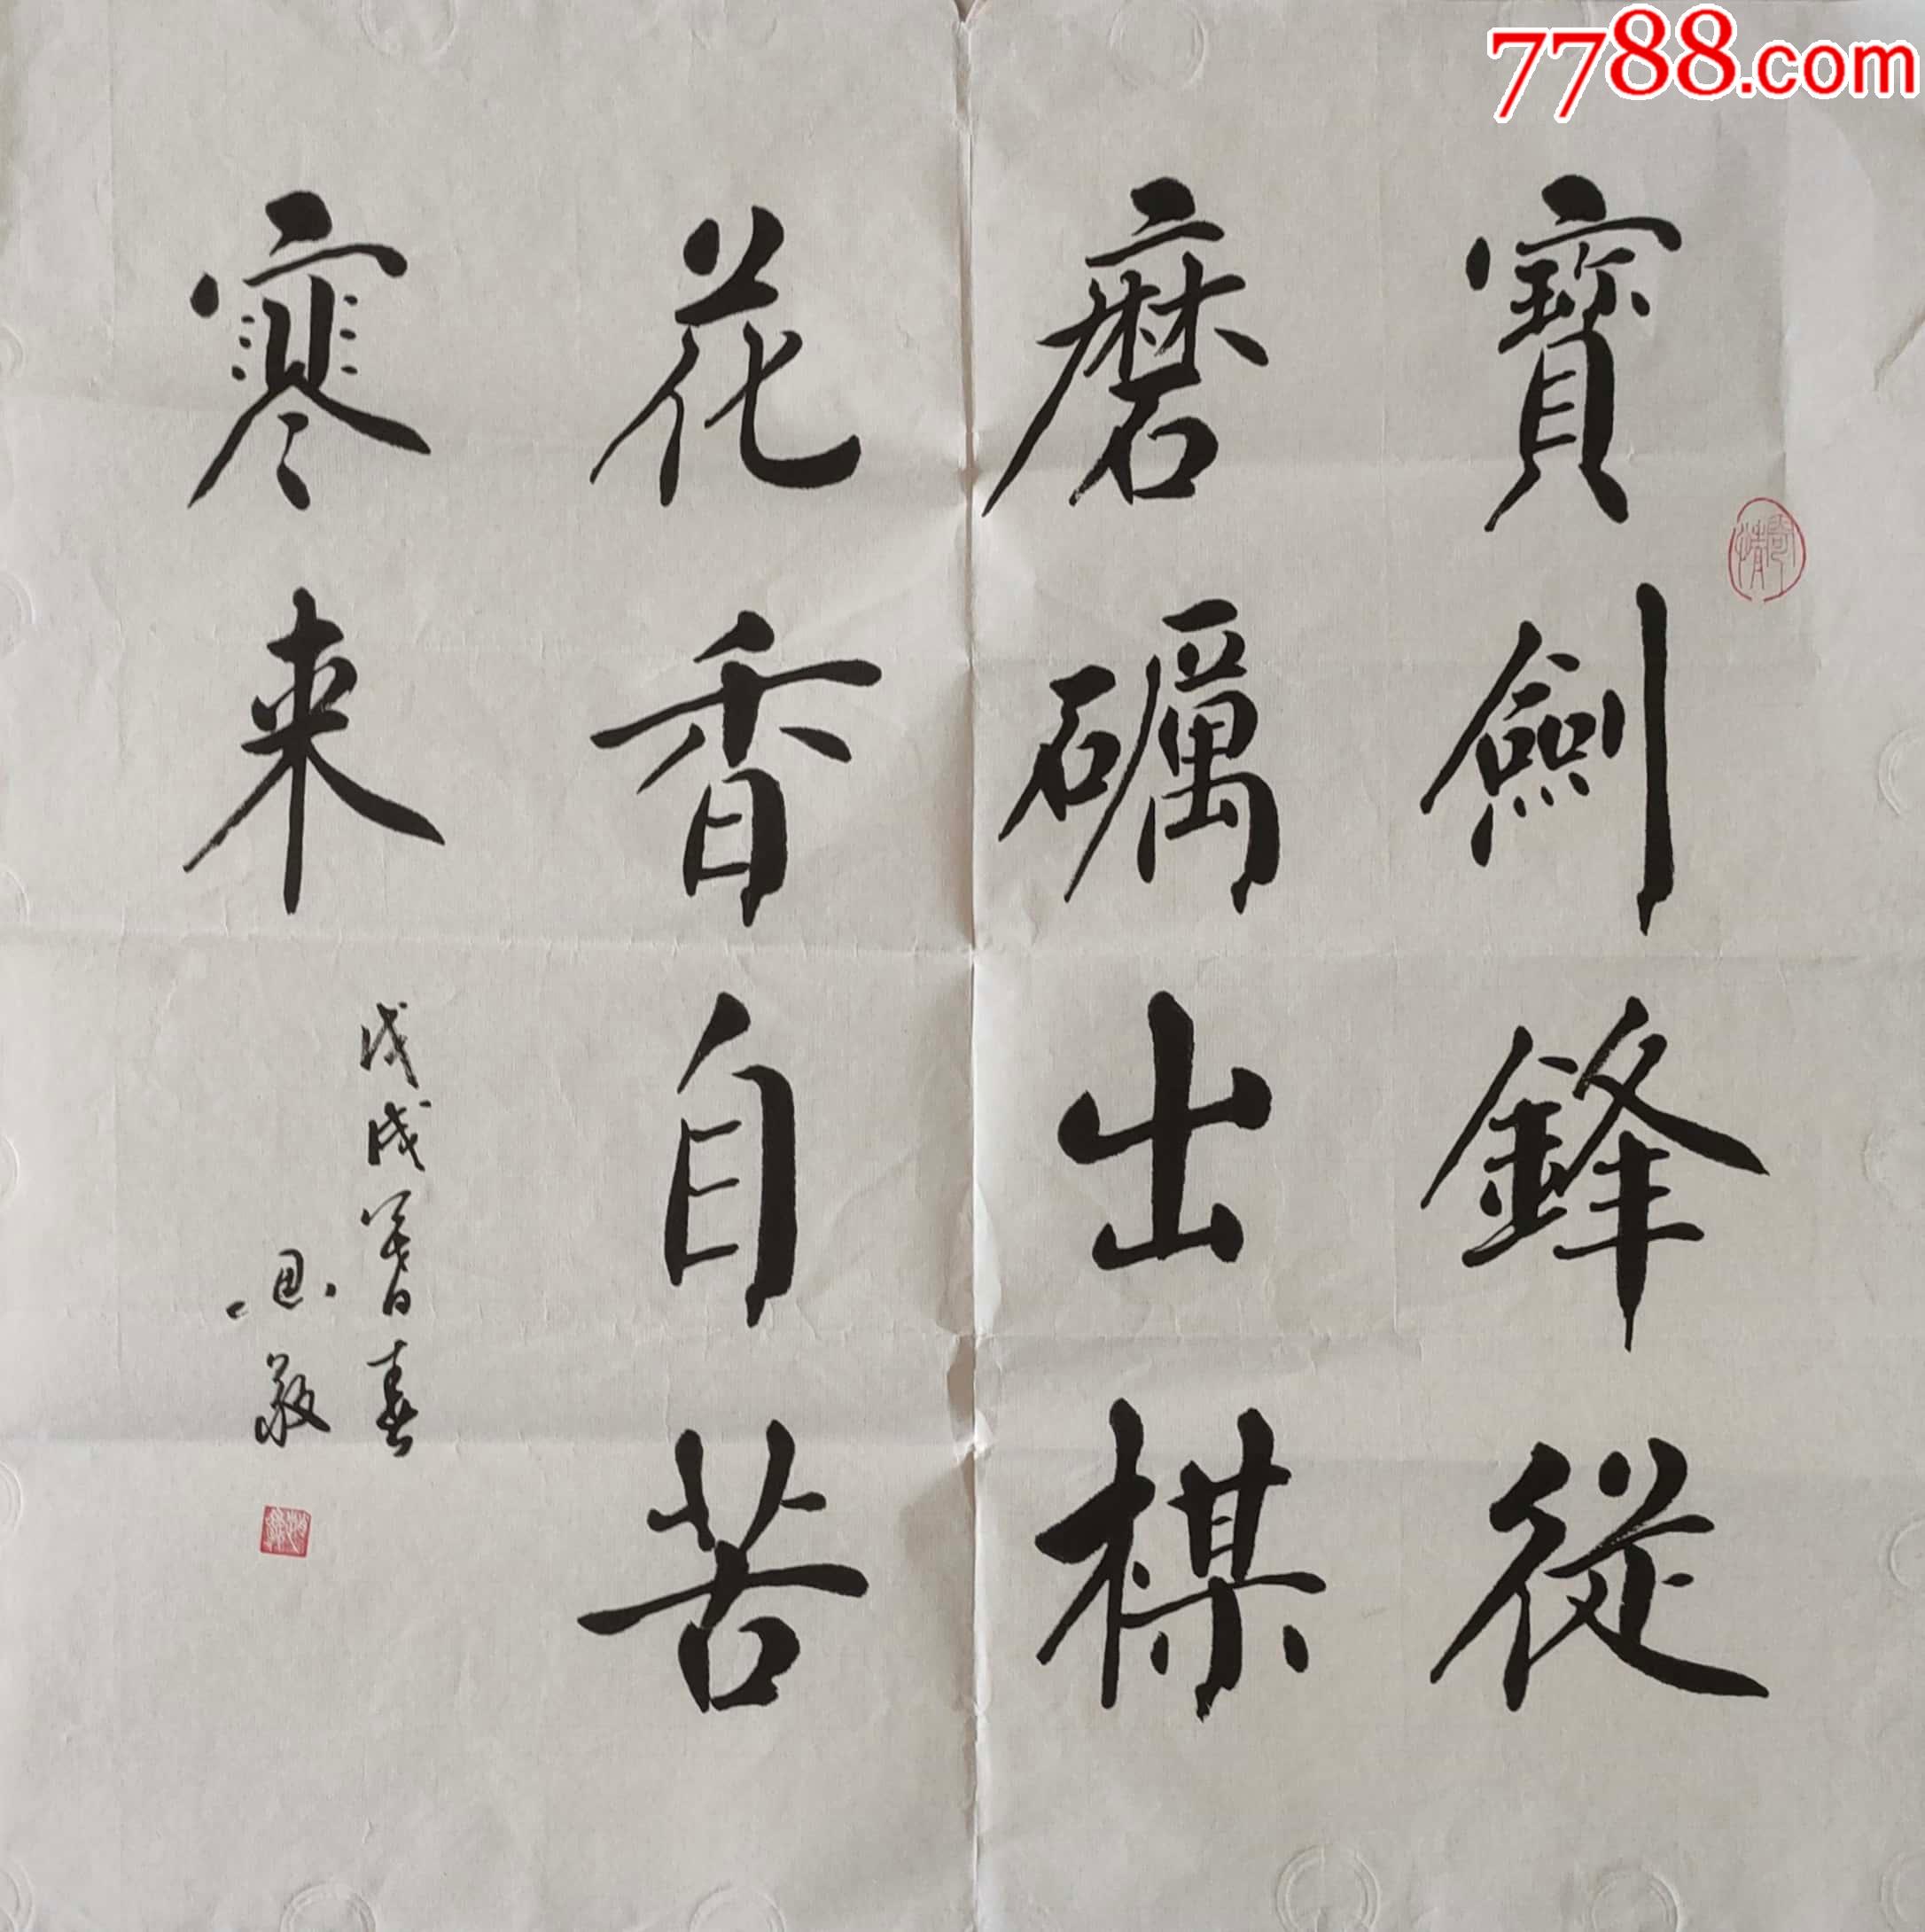 7788.com
寶劍鋒從
磨礪出楳
花香自苦
寒来
戊戌暮春
思敬